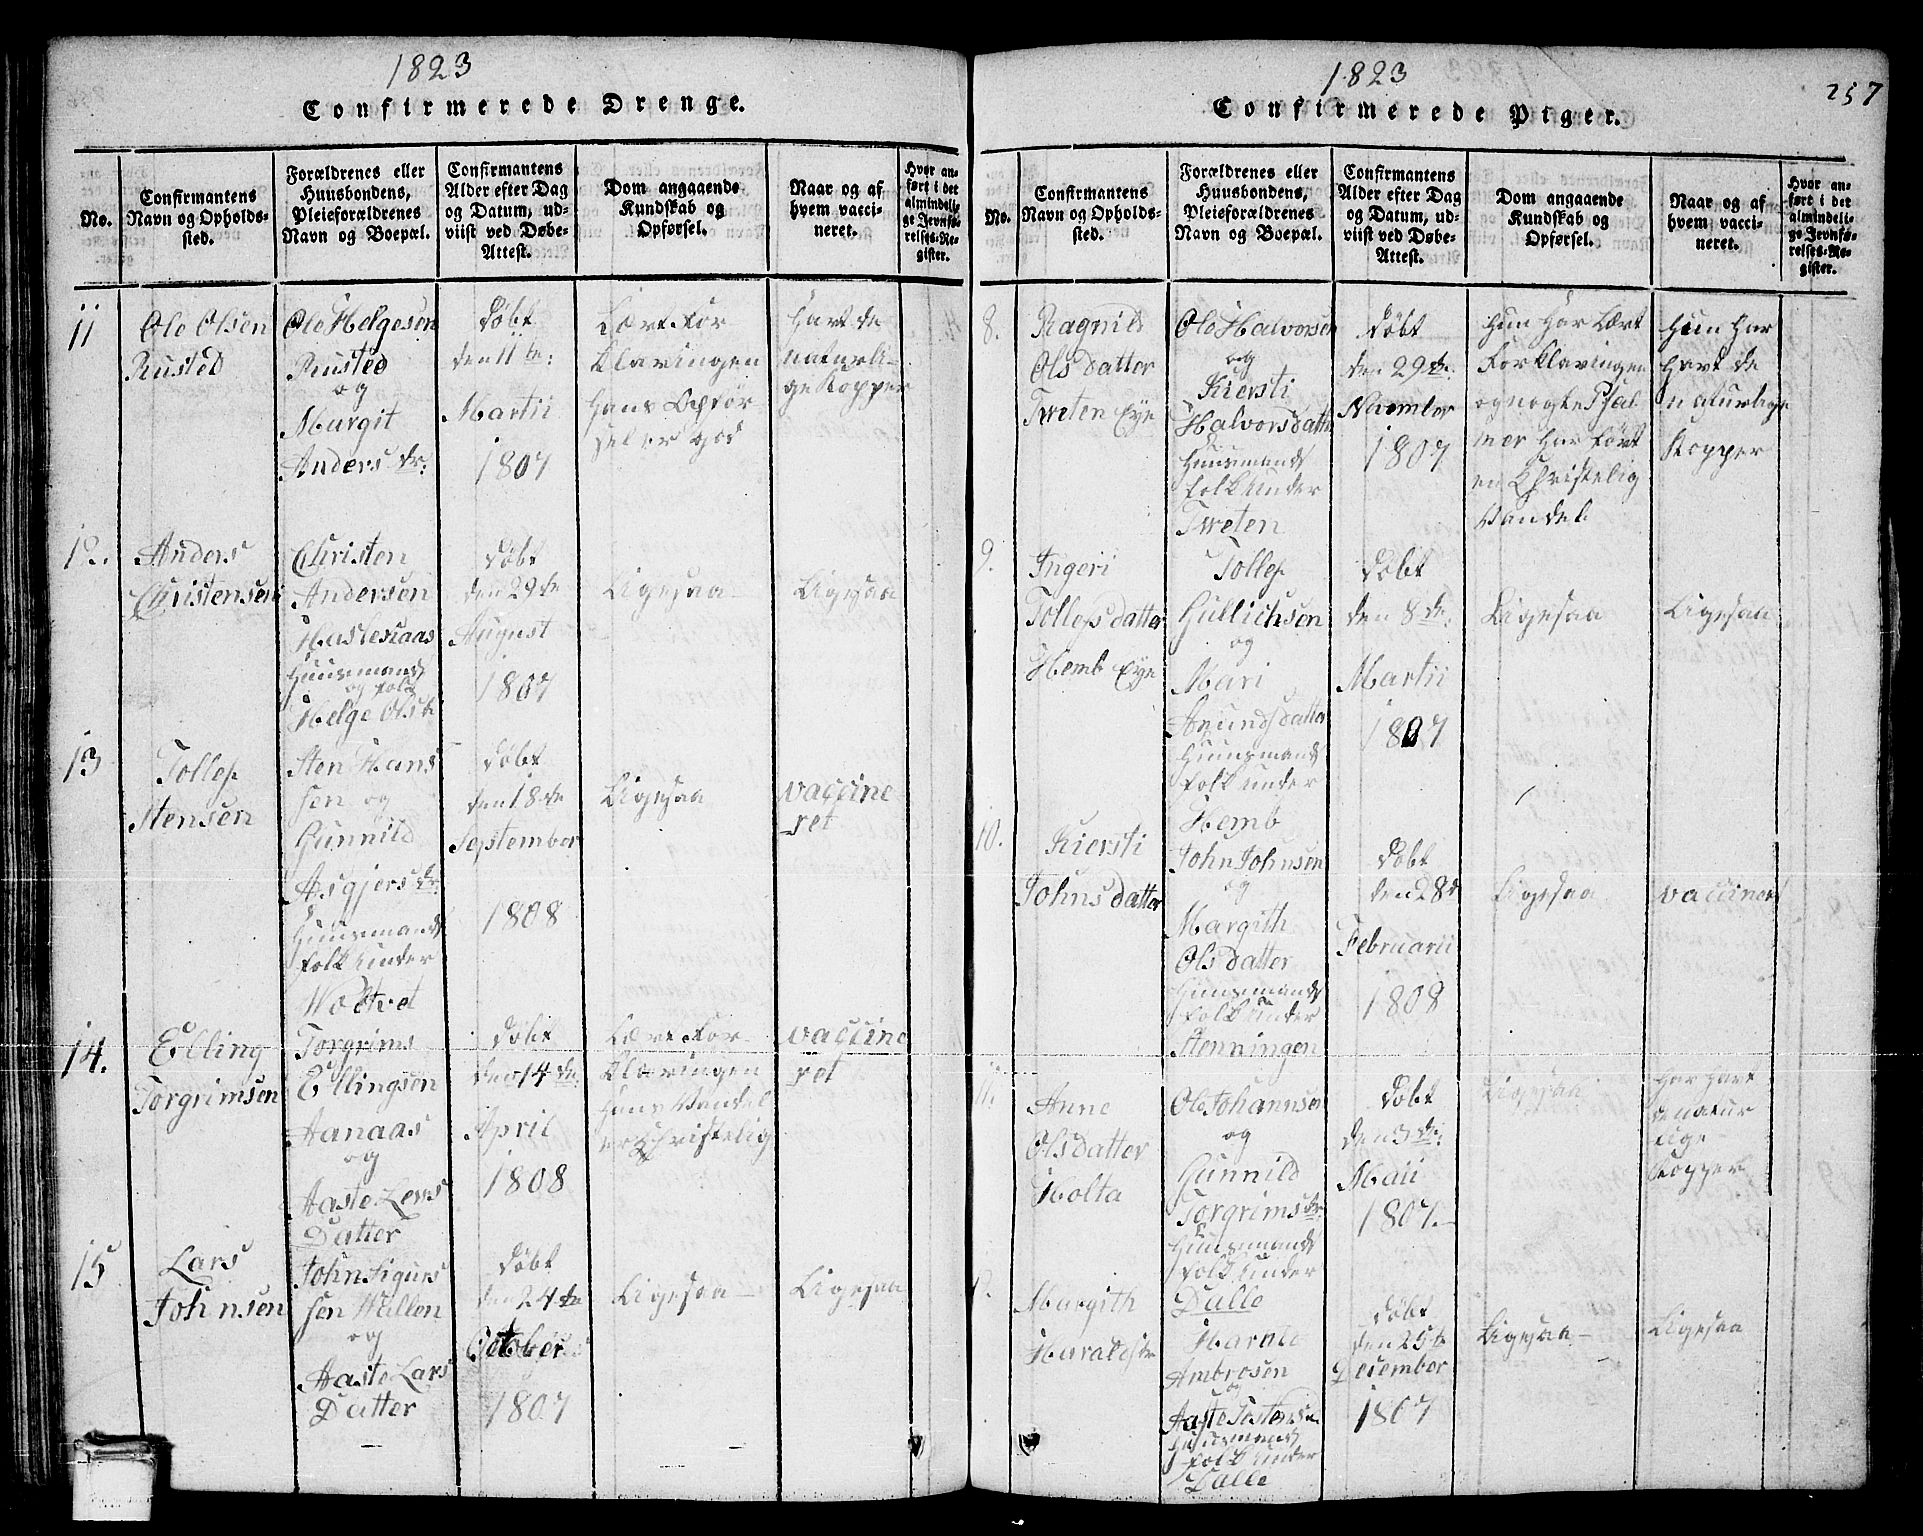 1823
Confirmerede Drenge.
No.
Confirmantens
Navn og Opholds-
sted.
Forældrenes eller
Huusbondens,
Pleieforældrenes
Navn og Boepæl.
Confirmantens
Alder efter Dag
og Datum, ud-
viist ved Døbe-
Attest.
Dom angaaende
Kundskab og
Opførsel.
Naar og af
hvem vacci-
neret.
Hvor an-
ført i det
almindeli-
ge Jevnfø-
relses-Re-
gister.
11
Ole Olsen
Rusted
Ole Helgesøn
Rusted
og
Margit
Anders dr:
døbt
den 11te:
Martii
1807
Lært For
klaringen
hans Opfør
sel er god
havt de
naturli-
ge Kopper
12.
Anders
Christensen
Christen
Andersøn
Haslestaas
Huusmands
og folk
Helge Olsdr
døbt
den 29de
August
1807
Ligesaa
Ligesaa
13
Tollef
Stensen
Sten Hans
sen og
Gunnild
Asgjers dr:
Huusmands
folk under
Wodtvet
døbt
den 18de
September
1808
Ligesaa
vaccine
ret
14.
Elling
Torgrimsøn
Torgrims
Ellingsøn
Aanaas
og
Aaste Lers
Datter
døbt
den 14de
April
1808
Lært For
klaringen
hans Vandel
er Christelig
vaccine
ret
15
Lars
Johnsøn
John Sigurs
sen Wallen
og
Aaste Lars
Datter
døbt
den 24de
October
1807
Ligesaa
Ligesaa
1823
257
Confirmerede Piger.
No.
Confirmantens
Navn og Opholds-
sted.
Forældrenes eller
Huusbondens,
Pleieforældrenes
Navn og Boepæl.
Confirmantens
Alder efter Dag
og Datum, ud-
viist ved Døbe-
Attest.
Dom angaaende
Kundskab og
Opførsel.
Naar og af
hvem vacci-
neret.
Hvor an-
ført i det
almindeli-
ge Jevnfø-
relses-Re-
gister.
8.
Ragnild
Olsdatter
Tweten Eye
Ole Halvorsen
og
Kiersti
Halvorsdatter
Huusmands
folk under
Tweten
døbt
den 29de:
November
1807
Hun har lært
Forklaringen
og nogle Psal
mer har ført
en Christelig
Vandel
Hun har
havt de
naturlige
Kopper
9.
Ingeri
Tollefsdatter
Hemb Eye
Tollef
Gullichsen
og
Mari
Anundsdatter
Huusmands
folk under
Hemb
døbt
den 8de:
Martii
1807
Ligesaa
Ligesaa
10.
Kiersti
Johnsdatter
John Johnsen
og
Margith
Olsdatter
Huusmands
folk under
Stenningen
døbt
den 28d
Februarii
1808
Ligesaa
vacciner
11.
Anne
Olsdatter
Holta
Ole Johannsen
og
Gunnild
Torgrims dr:
Huusmands
folk under
Dalle
døbt
den 3de:
Maii
1807.
Ligesaa
har havt
de natur
lige
Kopper
Margith
Haraldsdr
Harald
Ambrosen
og
Aaste
Huusmands
folk under
Dalle
døbt
den 25te
December
1807
Ligesaa
Ligesaa